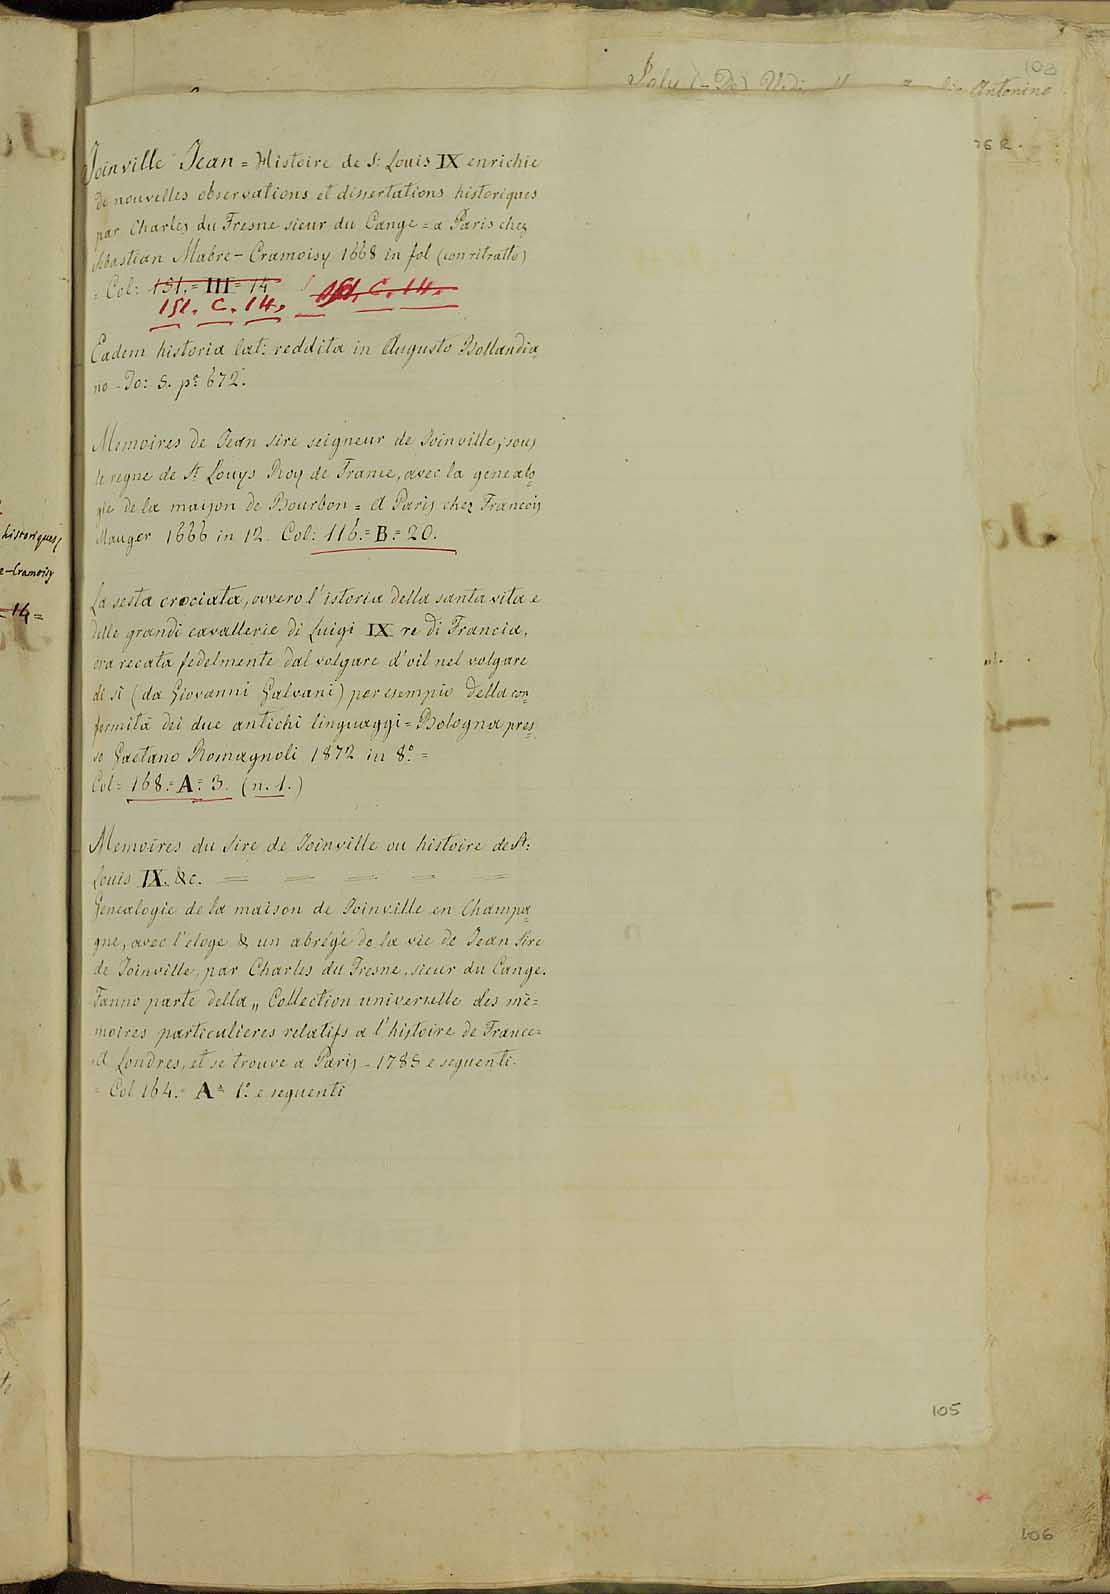 103
Antonino
76 R.
Joinville Jean = Histoire de S: Louis IX enrichie
de nouvelles observations et dissertations historiques
par Charles du Fresne sieur du Cange = a Paris chez
Sebastian Mabre-Cramoisy 1668 in fol (con ritratto)
= Col: 151. = III = 14
151. C. 14, 151. C. 14.
Eadem historia lat: reddita in Augusto Bollandia
no - To: 5. pr 672.
Memoires de Jean sire seigneur de Joinville, sous
le regne de St Louys Roy de France, avec la genealo
gie de la maison de Bourbon = A Paris chez Francois
Mauger 1666 in 12. Col: 116. = B. = 20.
La sesta crociata, ovvero l'istoria della santa vita e
delle grandi cavallerie di Luigi IX re di Francia,
ora recata fedelmente dal volgare d'oil nel volgare
di sì (da Giovanni Galvani) per esempio della con
formità dei due antichi linguaggi = Bologna pres
so Gaetano Romagnoli 1872 in 8° =
Col = 168. = A = 3. (n. 1.)
Memoires du Sire de Joinville ou histoire de St:
Louis IX. &c. = = = = =
Genealogie de la maison de Joinville en Champa
gne, avec l'eloge & un abrégé de la vie de Jean Sire
de Joinville, par Charles du Fresne, sieur du Cange.
Fanno parte della „ Collection universelle des mé=
moires particulieres relatifs a l'histoire de France =
A Londres, et se trouve a Paris - 1785 e seguenti.
= Col 164. = A = 1° e seguenti
historiques,
e-Cramoisy
14 =
105
106